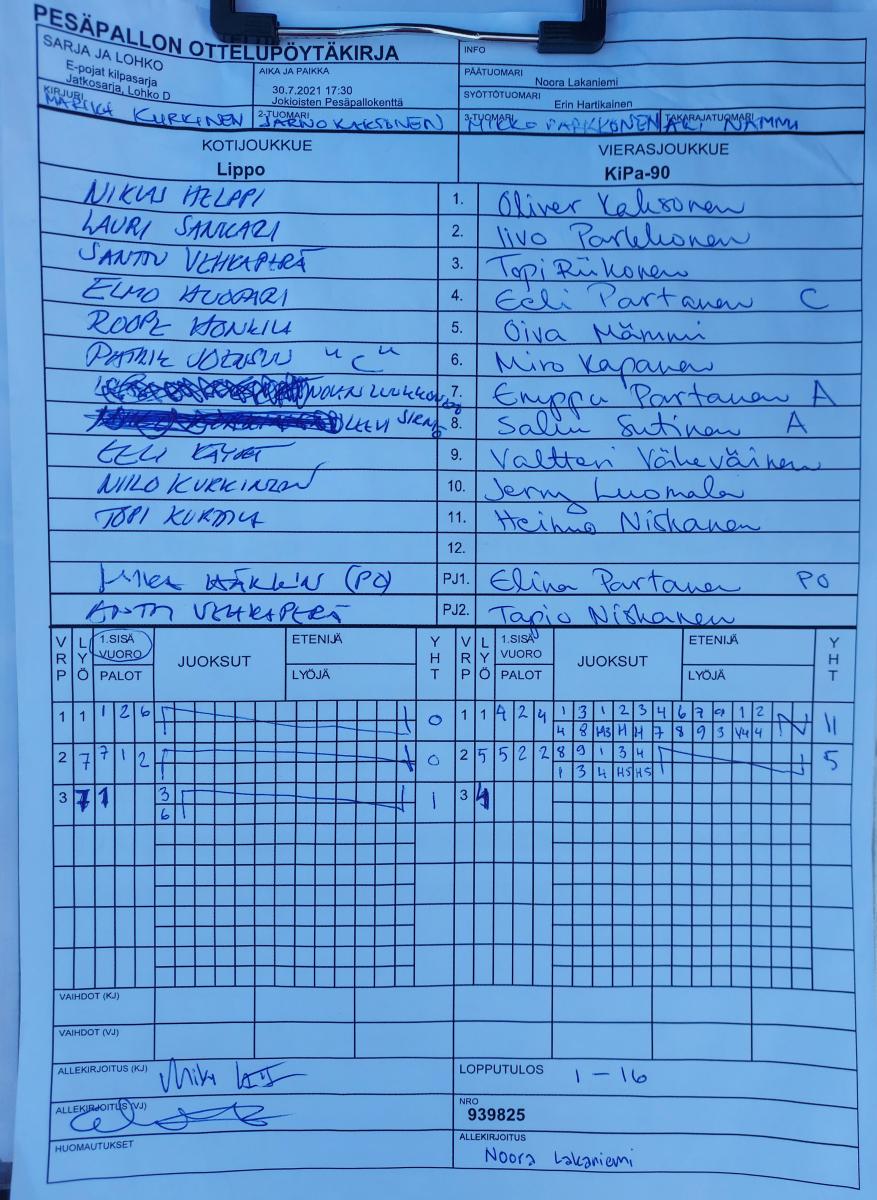 PESÄPALLON OTTELUPÖYTÄKIRJA
SARJA JA LOHKO
E-pojat kilpasarja
Jatkosarja, Lohko D
AIKA JA PAIKKA
30.7.2021 17:30
Jokioisten Pesäpallokenttä
INFO
PÄÄTUOMARI
Noora Lakaniemi
SYÖTTÖTUOMARI
Erin Hartikainen
KIRJURI
MARIKA KURKINEN
2-TUOMARI
JARNO KAKSONEN
3-TUOMARI
MIKKO PARKKONEN
TAKARAJATUOMARI
AKI NÄMMI
KOTIJOUKKUE
Lippo
VIERASJOUKKUE
KiPa-90
NIKLAS HELPPI 1. Oliver Kaksonen
LAURI SANKARI 2. Iivo Parkkonen
SANTTU VEHKAPERÄ 3. Topi Riikonen
ELMO HUOVARI 4. Eeli Partanen C
ROOPE HONKILA 5. Oiva Mämmi
PATRIK "C" 6. Miro Kapanen
7. Emppu Partanen A
LEEVI 8. Salin Sutinen A
EELI 9. Valtteri Väheväinen
NIILO KURKINEN 10. Jerry Luomala
TOPI KURTTILA 11. Heimo Niskanen
12.
MIKA (PO) PJ1. Elina Partanen PO
ANTTI VEHKAPERÄ PJ2. Tapio Niskanen
VRP LYÖ 1.SISÄ VUORO PALOT JUOKSUT ETENIJÄ LYÖJÄ YHT VRP LYÖ 1.SISÄ VUORO PALOT JUOKSUT ETENIJÄ LYÖJÄ YHT
1 1 1 2 6 0 1 1 4 2 4 1 3 1 2 3 4 6 7 9 1 2 11
4 8 H3 H H 7 8 9 3 V4 4
2 7 7 1 2 0 2 5 5 2 2 8 9 1 3 4 5
1 3 4 H5 H5
3 7 1 3 1 3 4
6
VAIHDOT (KJ)
VAIHDOT (VJ)
ALLEKIRJOITUS (KJ)
LOPPUTULOS 1 - 16
ALLEKIRJOITUS (VJ)
NRO
939825
HUOMAUTUKSET
ALLEKIRJOITUS
Noora Lakaniemi